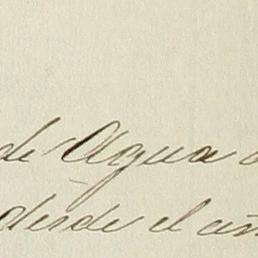 de Agua
desde el añ